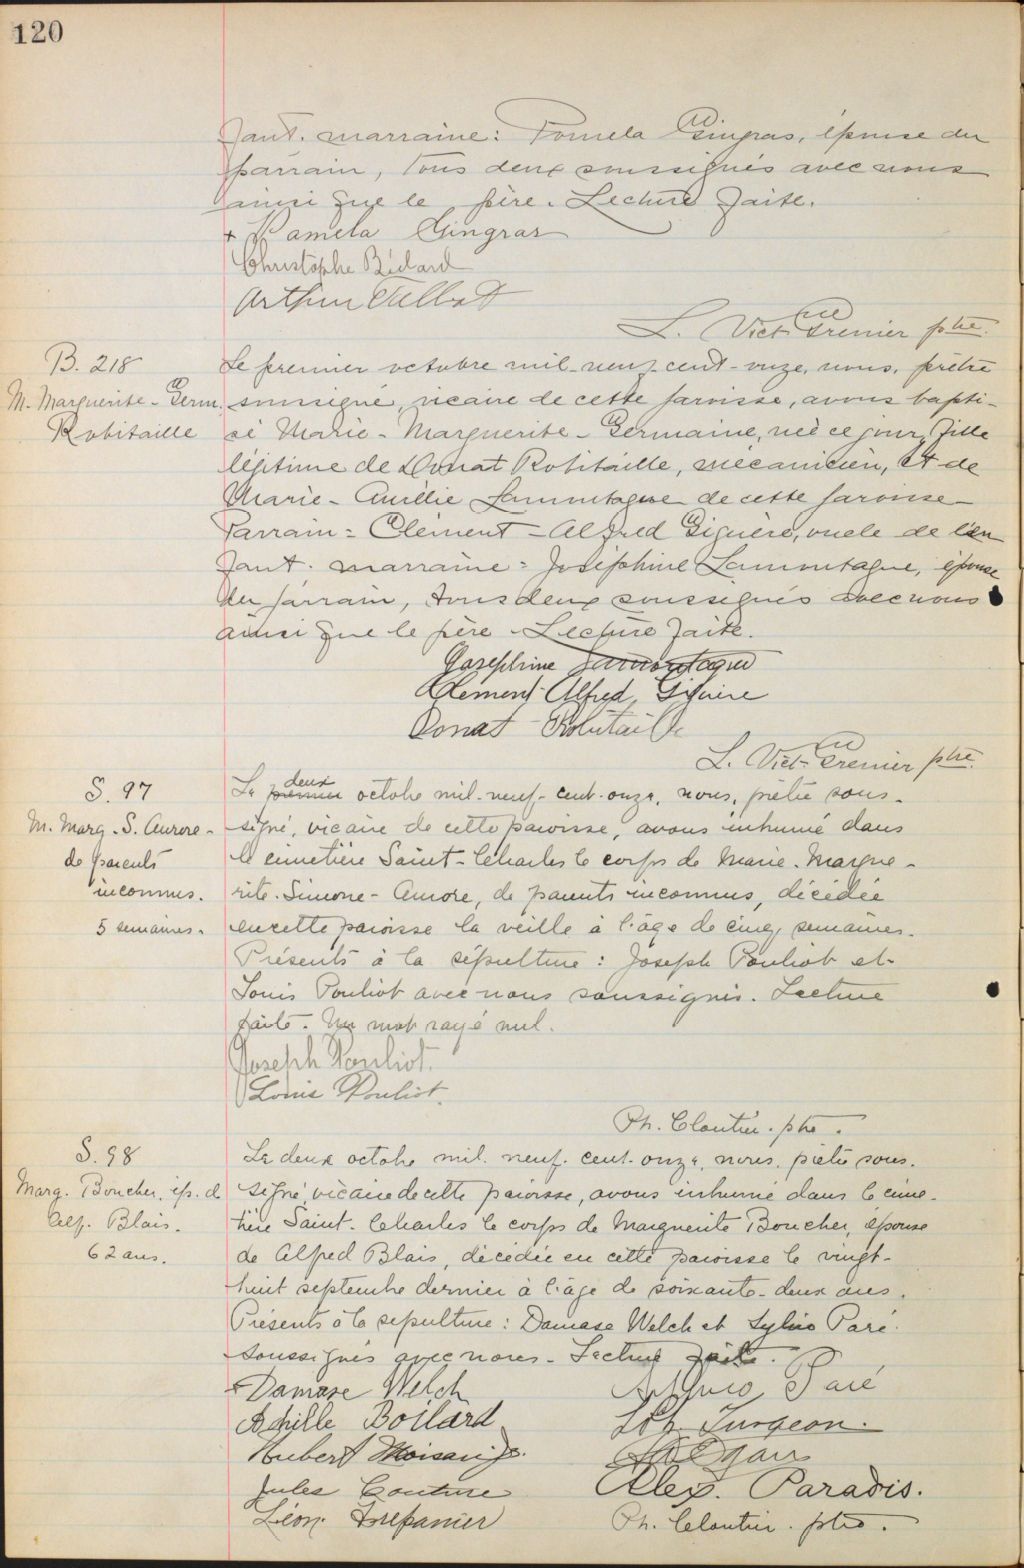 120
fant. marraine: Pomela Gingras, épouse du
parrain, tous deux soussignés avec nous
ainsi que le père. Lecture faite.
+ Pamela Gingras
Christophe Bédard
Arthur Talbot
L. Vict. Grenier ptre.
B. 218
M. Marguerite-Germ.
Robitaille
Le premier octobre mil-neuf-cent-onze, nous, prêtre
soussigné, vicaire de cette paroisse, avons bapti-
sé Marie-Marguerite-Germaine, née ce jour, fille
légitime de Donat Robitaille, mécanicien, et de
Marie-Aurélie Lamontagne de cette paroisse-
Parrain = Clément-Alfred Giguère, oncle de l'en
fant. marraine = Joséphine Lamontagne, épouse
du parrain, tous deux soussignés avec nous
ainsi que le père. Lecture faite.
Josephine Lamontagne
Clement-Alfred Giguère
Donat Robitaille
L. Vict. Grenier ptre.
S. 97
M. Marg.-S. Aurore-
de parents
inconnus.
5 semaines.
deux
Le premier octobre mil-neuf-cent-onze, nous, prêtre sous-
signé, vicaire de cette paroisse, avons inhumé dans
le cimetière Saint-Charles le corps de Marie-Margue-
rite-Simone-Aurore, de parents inconnus, décédée
en cette paroisse la veille à l'âge de cinq semaines.
Présents à la sépulture: Joseph Pouliot et
Louis Pouliot avec nous soussignés. Lecture
faite. Un mot rayé nul.
Joseph Pouliot.
Louis Pouliot.
Ph. Cloutier. ptre.
S. 98
Marg. Boucher, ép. d
Alf. Blais.
62 ans.
Le deux octobre mil-neuf-cent-onze, nous, prêtre sous-
signé, vicaire de cette paroisse, avons inhumé dans le cime-
tière Saint-Charles le corps de Marguerite Boucher, épouse
de Alfred Blais, décédée en cette paroisse le vingt-
huit septembre dernier à l'âge de soixante-deux ans.
Présents à la sepulture: Damase Welch et Sylvio Paré
soussignés avec nous-Lecture faite.
Damase Welch
Sylvio Paré
Achille Boilard
Turgeon.
Hubert Moisan
Jules Couture
Alex. Paradis.
Léon Trepanier
Ph. Cloutier. ptre.